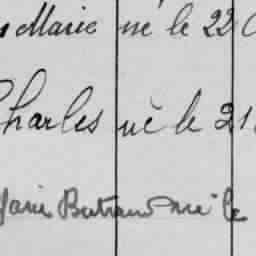 Marie né le 22
Charles né le 21
Marie Bertrand né le